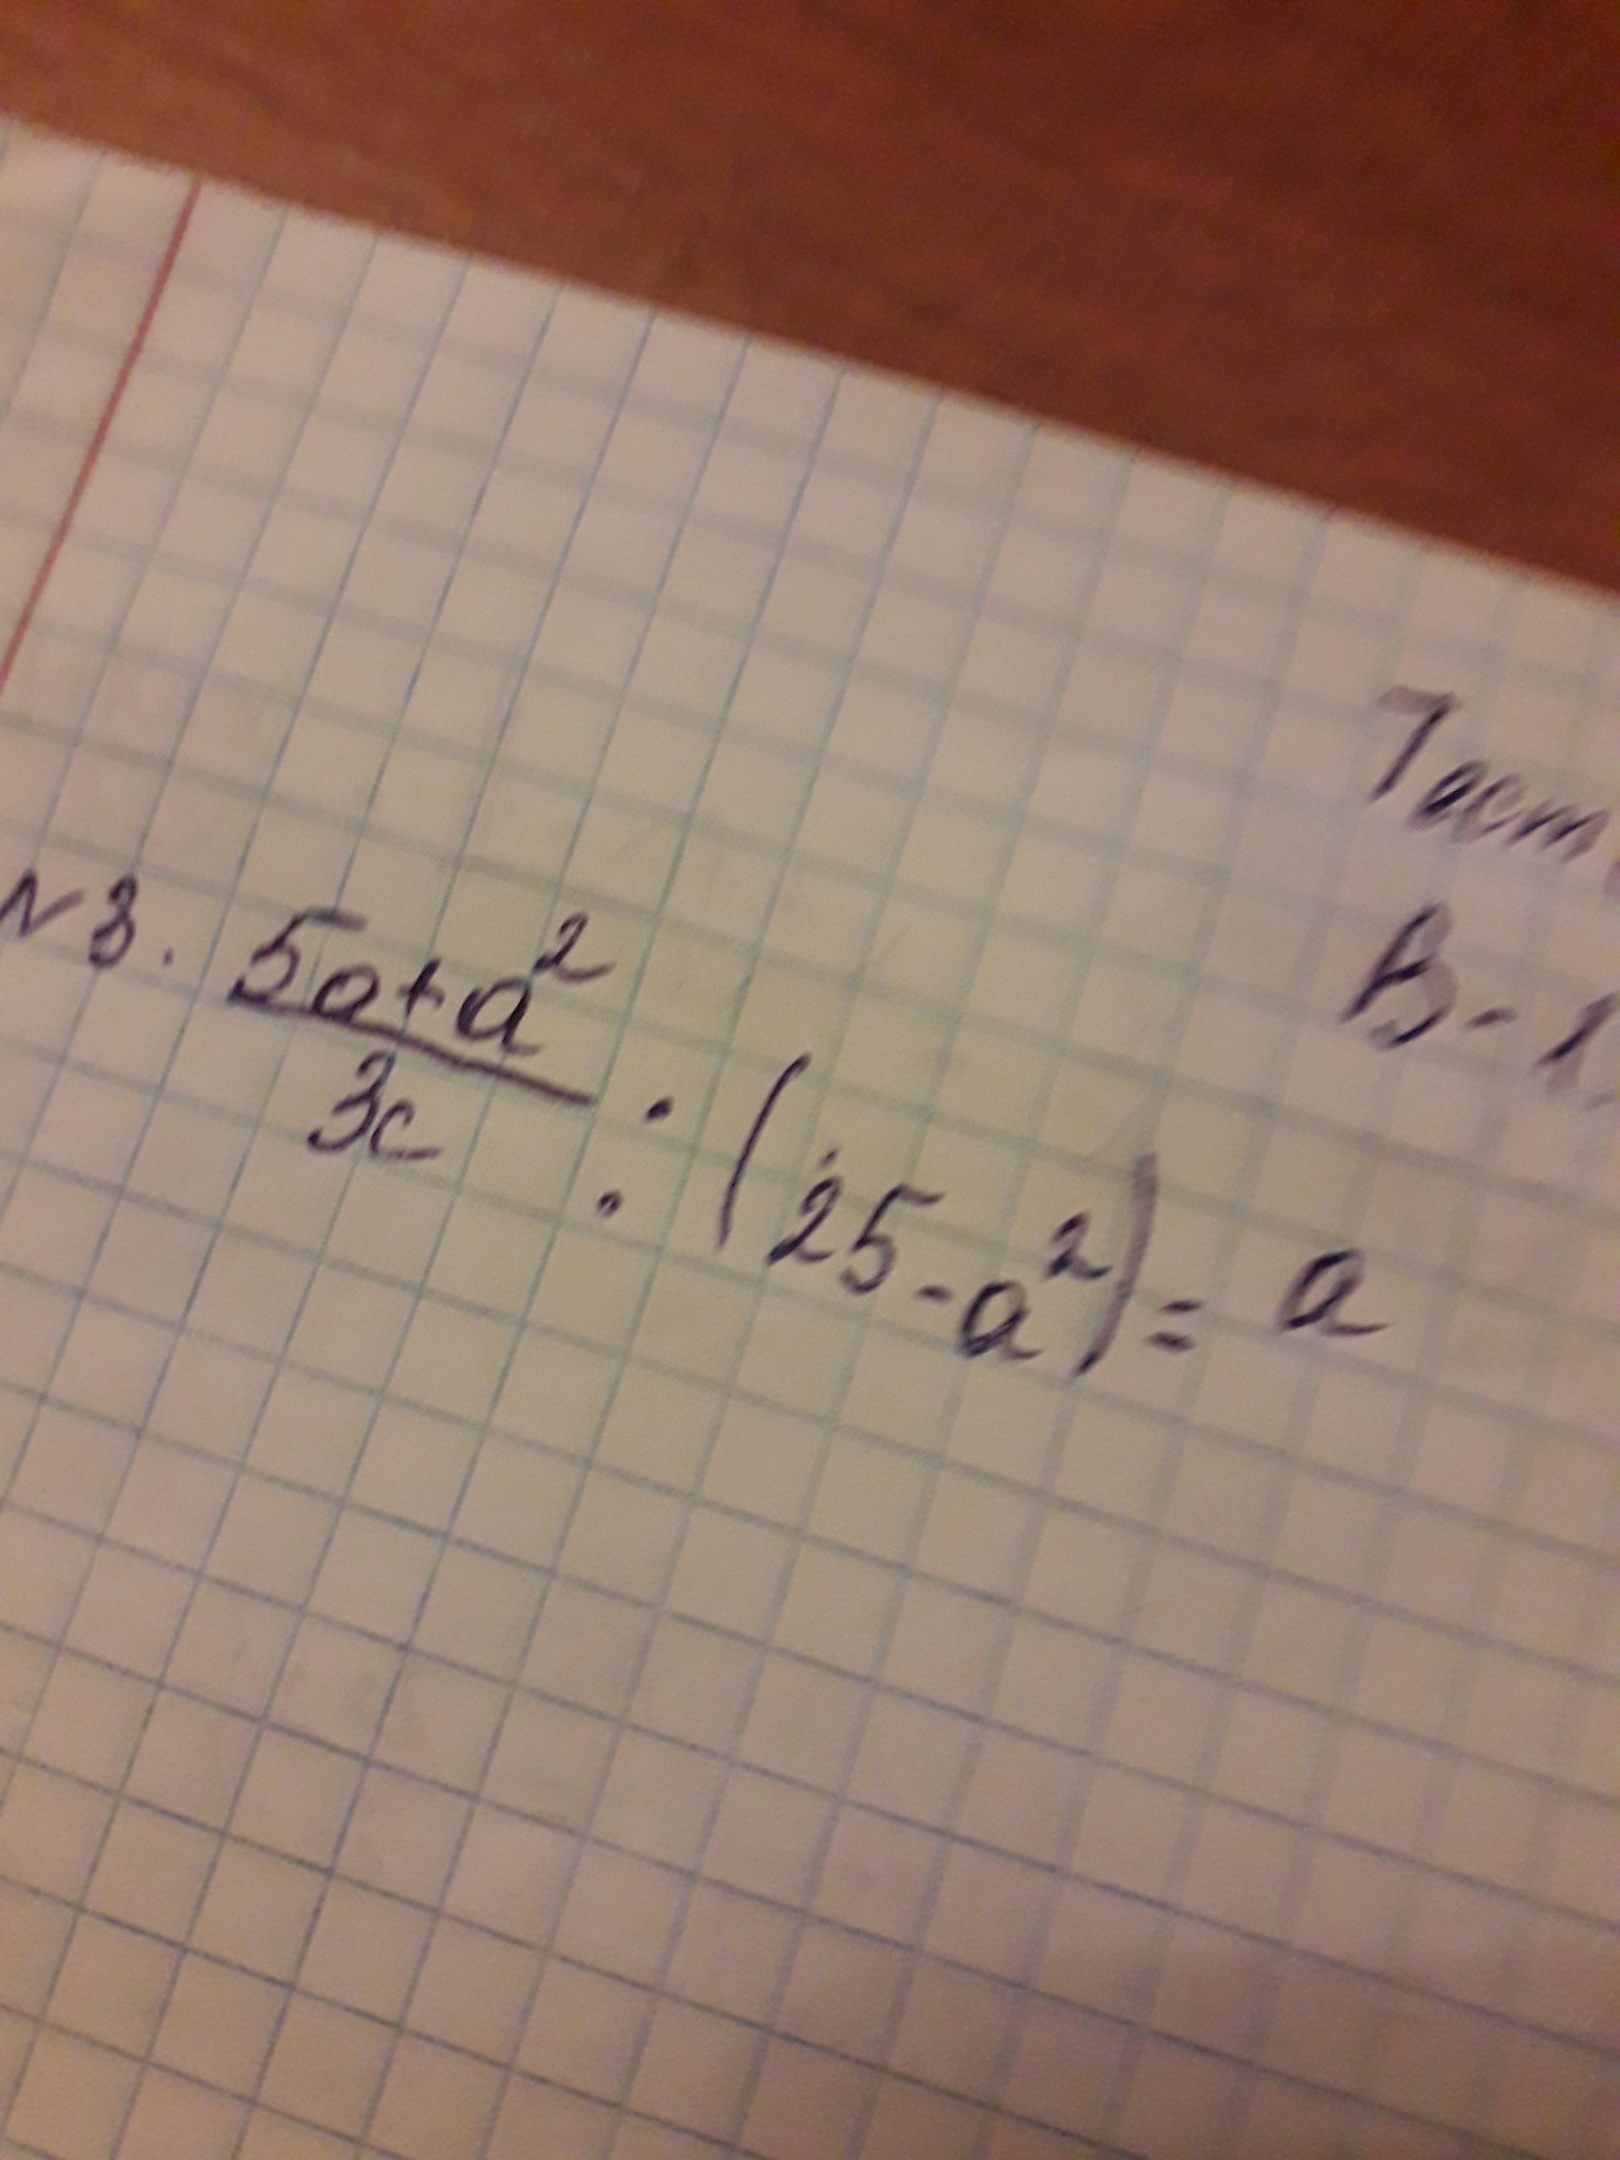 В-1
№3. (5a+a²)/3c : (25-a²) = a